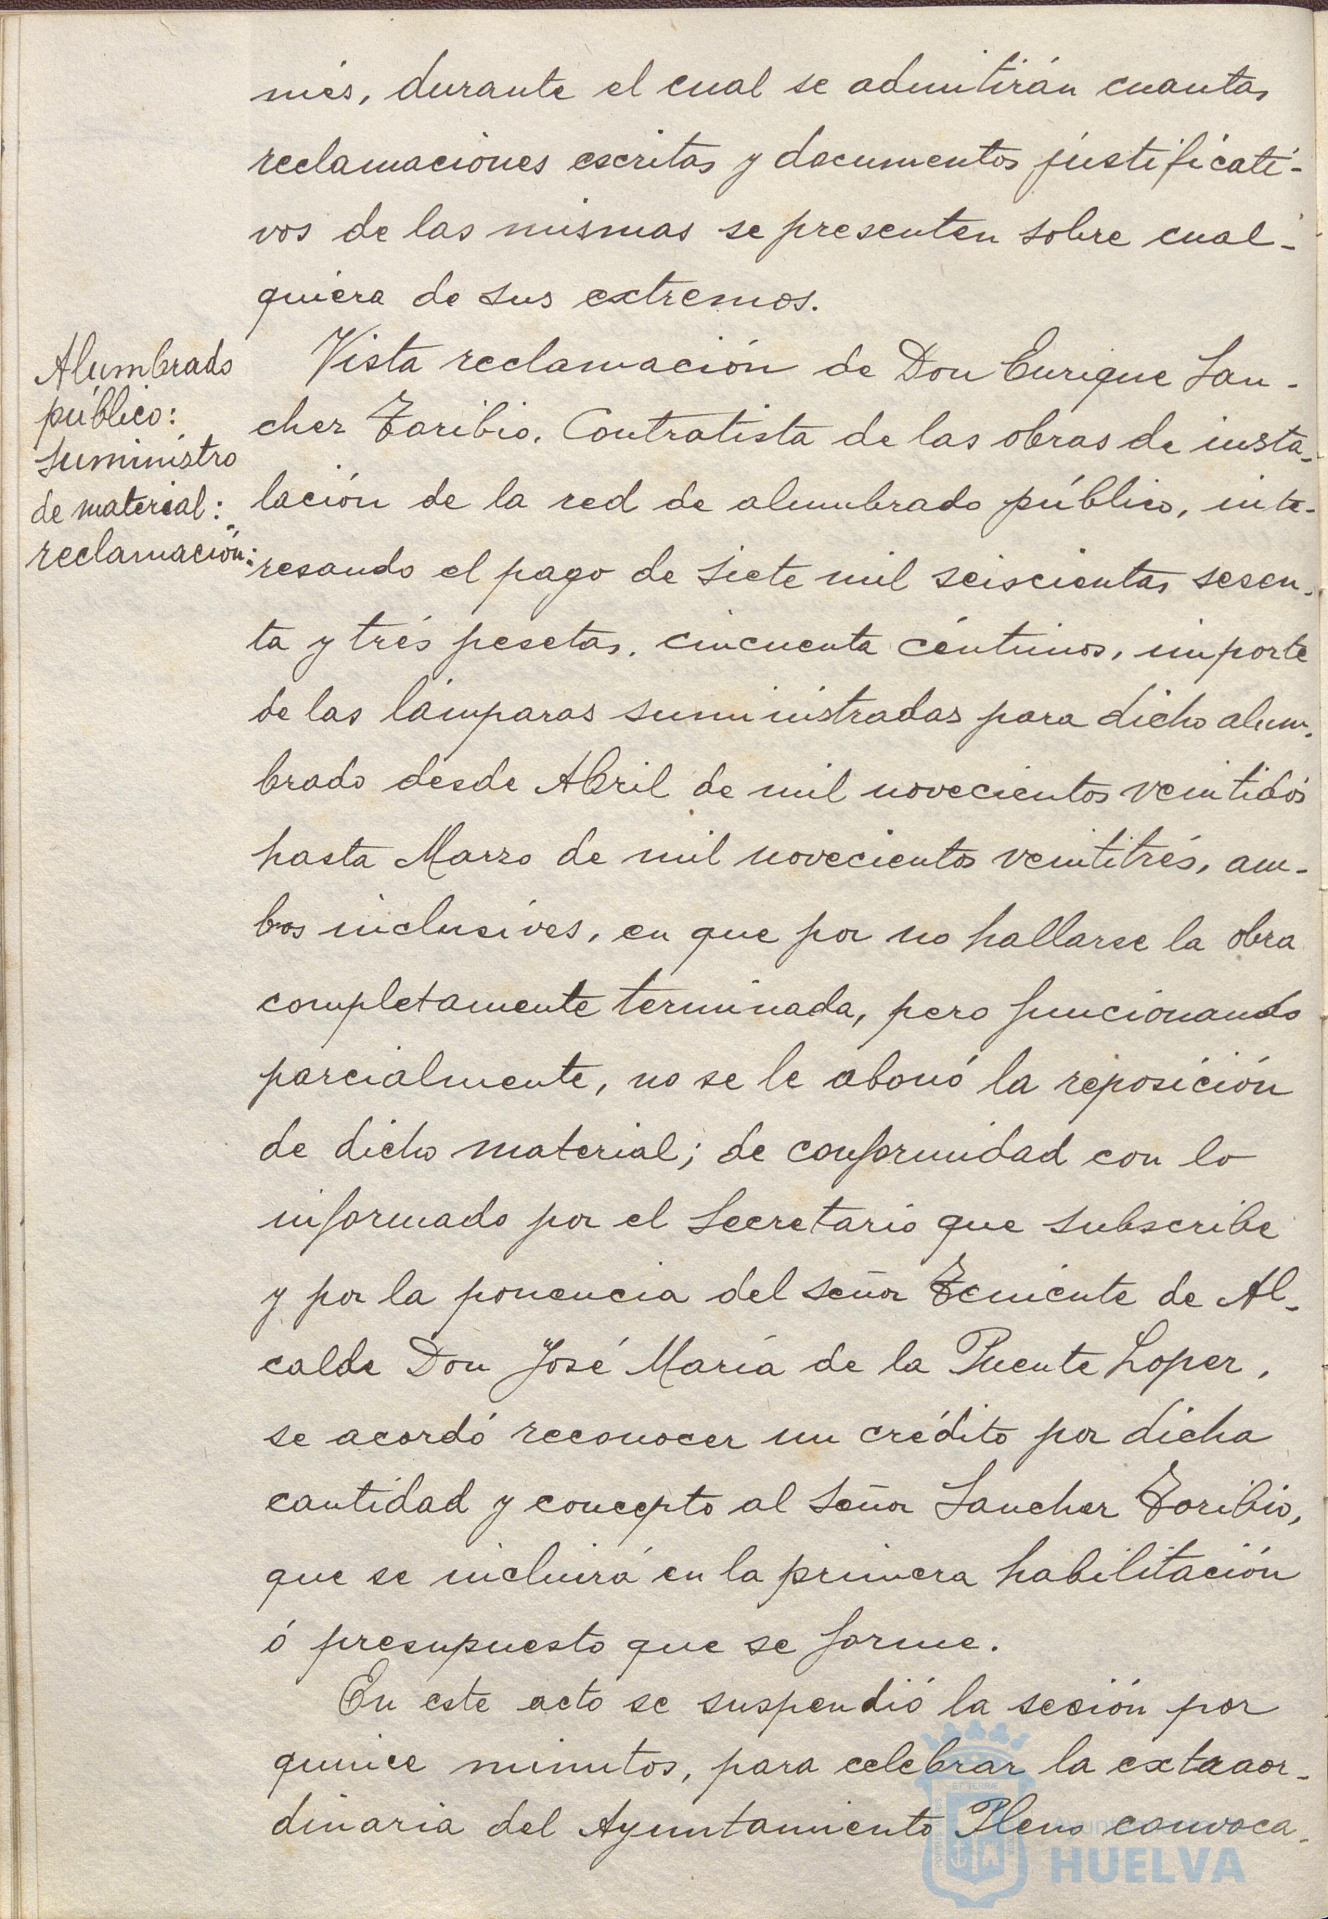 més, durante el cual se admitirán cuantas
reclamaciones escritas y documentos justificati-
vos de las mismas se presenten sobre cual-
quiera de sus extremos.
Alumbrado
público:
suministro
de material:
reclamación:
Vista reclamación de Don Enrique San-
chez Toribio, Contratista de las obras de insta-
lación de la red de alumbrado público, inte-
resando el pago de siete mil seiscientas sesen-
ta y trés pesetas, cincuenta céntimos, importe
de las lámparas suministradas para dicho alum-
brado desde Abril de mil novecientos veintidós
hasta Marzo de mil novecientos veintitrés, am-
bos inclusives, en que por no hallarse la obra
completamente terminada, pero funcionando
parcialmente, no se le abonó la reposición
de dicho material; de conformidad con lo
informado por el Secretario que subscribe
y por la ponencia del señor Teniente de Al-
calde Don José María de la Puente Lopez,
se acordó reconocer un crédito por dicha
cantidad y concepto al Señor Sanchez Toribio,
que se incluirá en la primera habilitación
ó presupuesto que se forme.
En este acto se suspendió la sesión por
quince minutos, para celebrar la extraor-
dinaria del Ayuntamiento Pleno convoca-
HUELVA